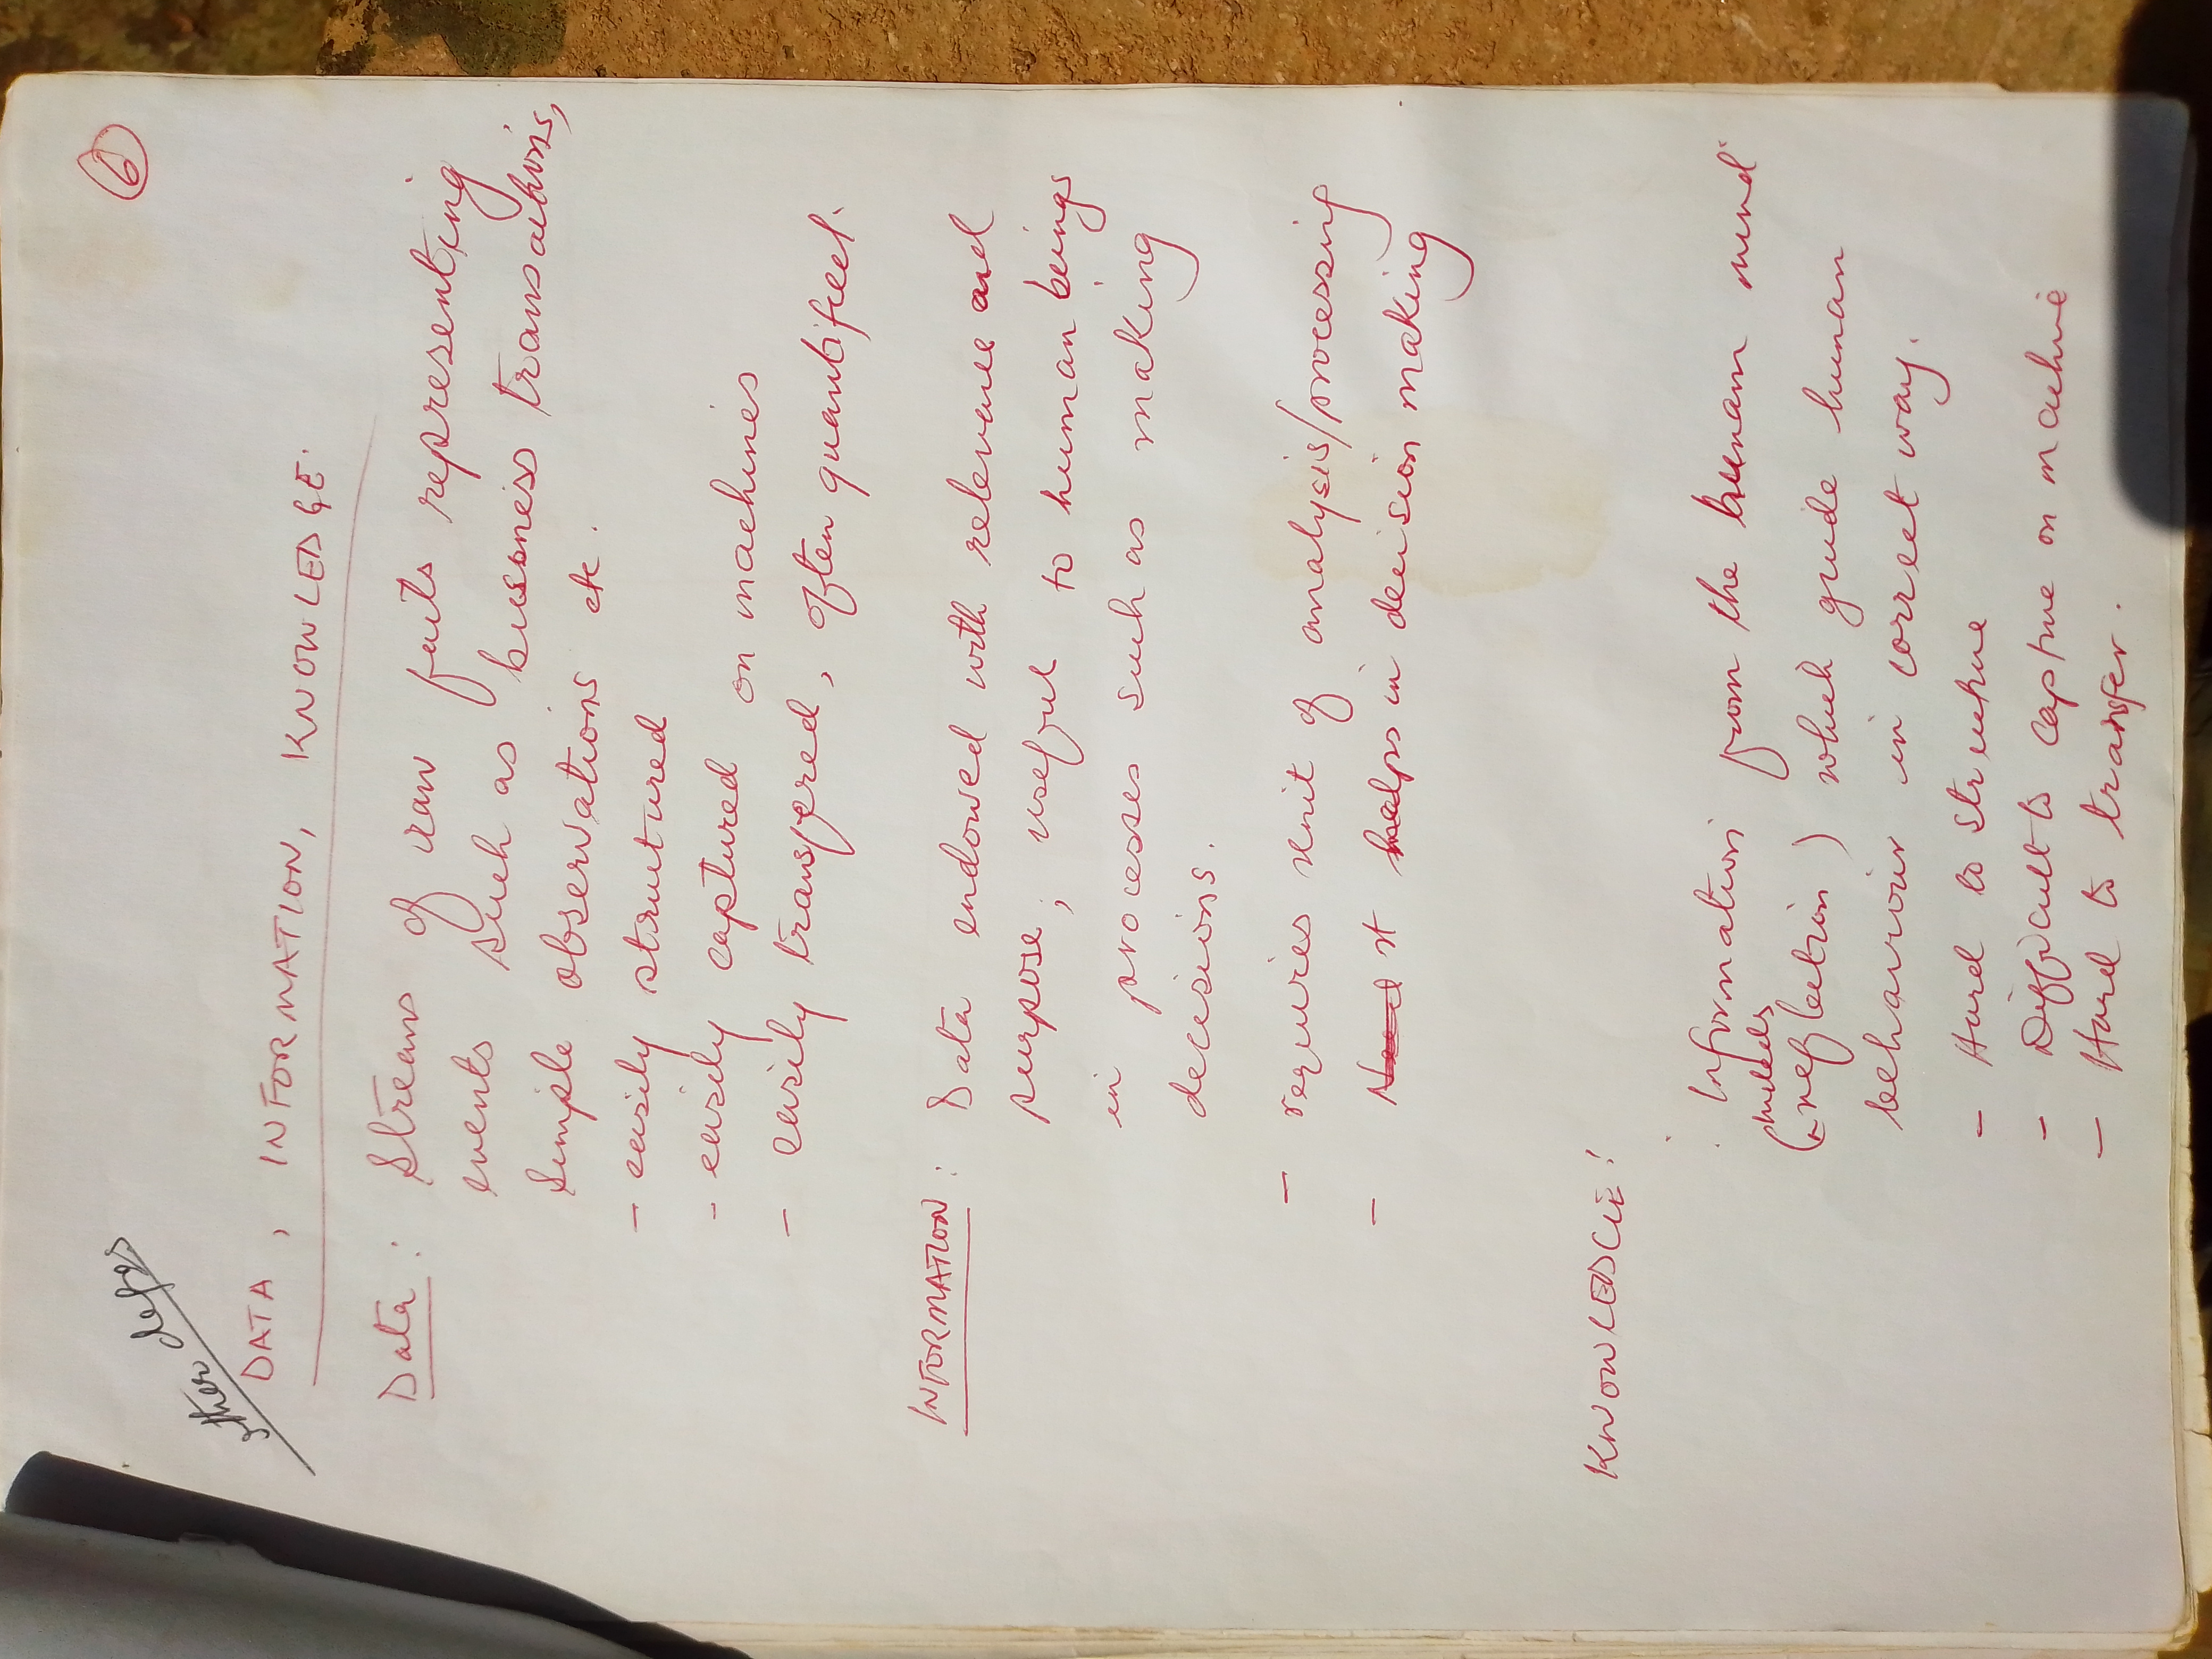 6
other defns
DATA, INFORMATION, KNOWLEDGE.
Data: Streams of raw facts representing
events such as business transactions,
simple observations etc.
- easily structured
- easily captured on machines
- easily transfered, often quantified.
INFORMATION: Data endowed with relevance and
purpose; useful to human beings
in processes such as making
decisions.
- requires unit of analysis/processing
- it helps in decision making
KNOWLEDGE:
: Information from the human mind
(rules
reflection) which guide human
behaviour in correct way.
- Hard to structure
- Difficult to capture on machine
- Hard to transfer.